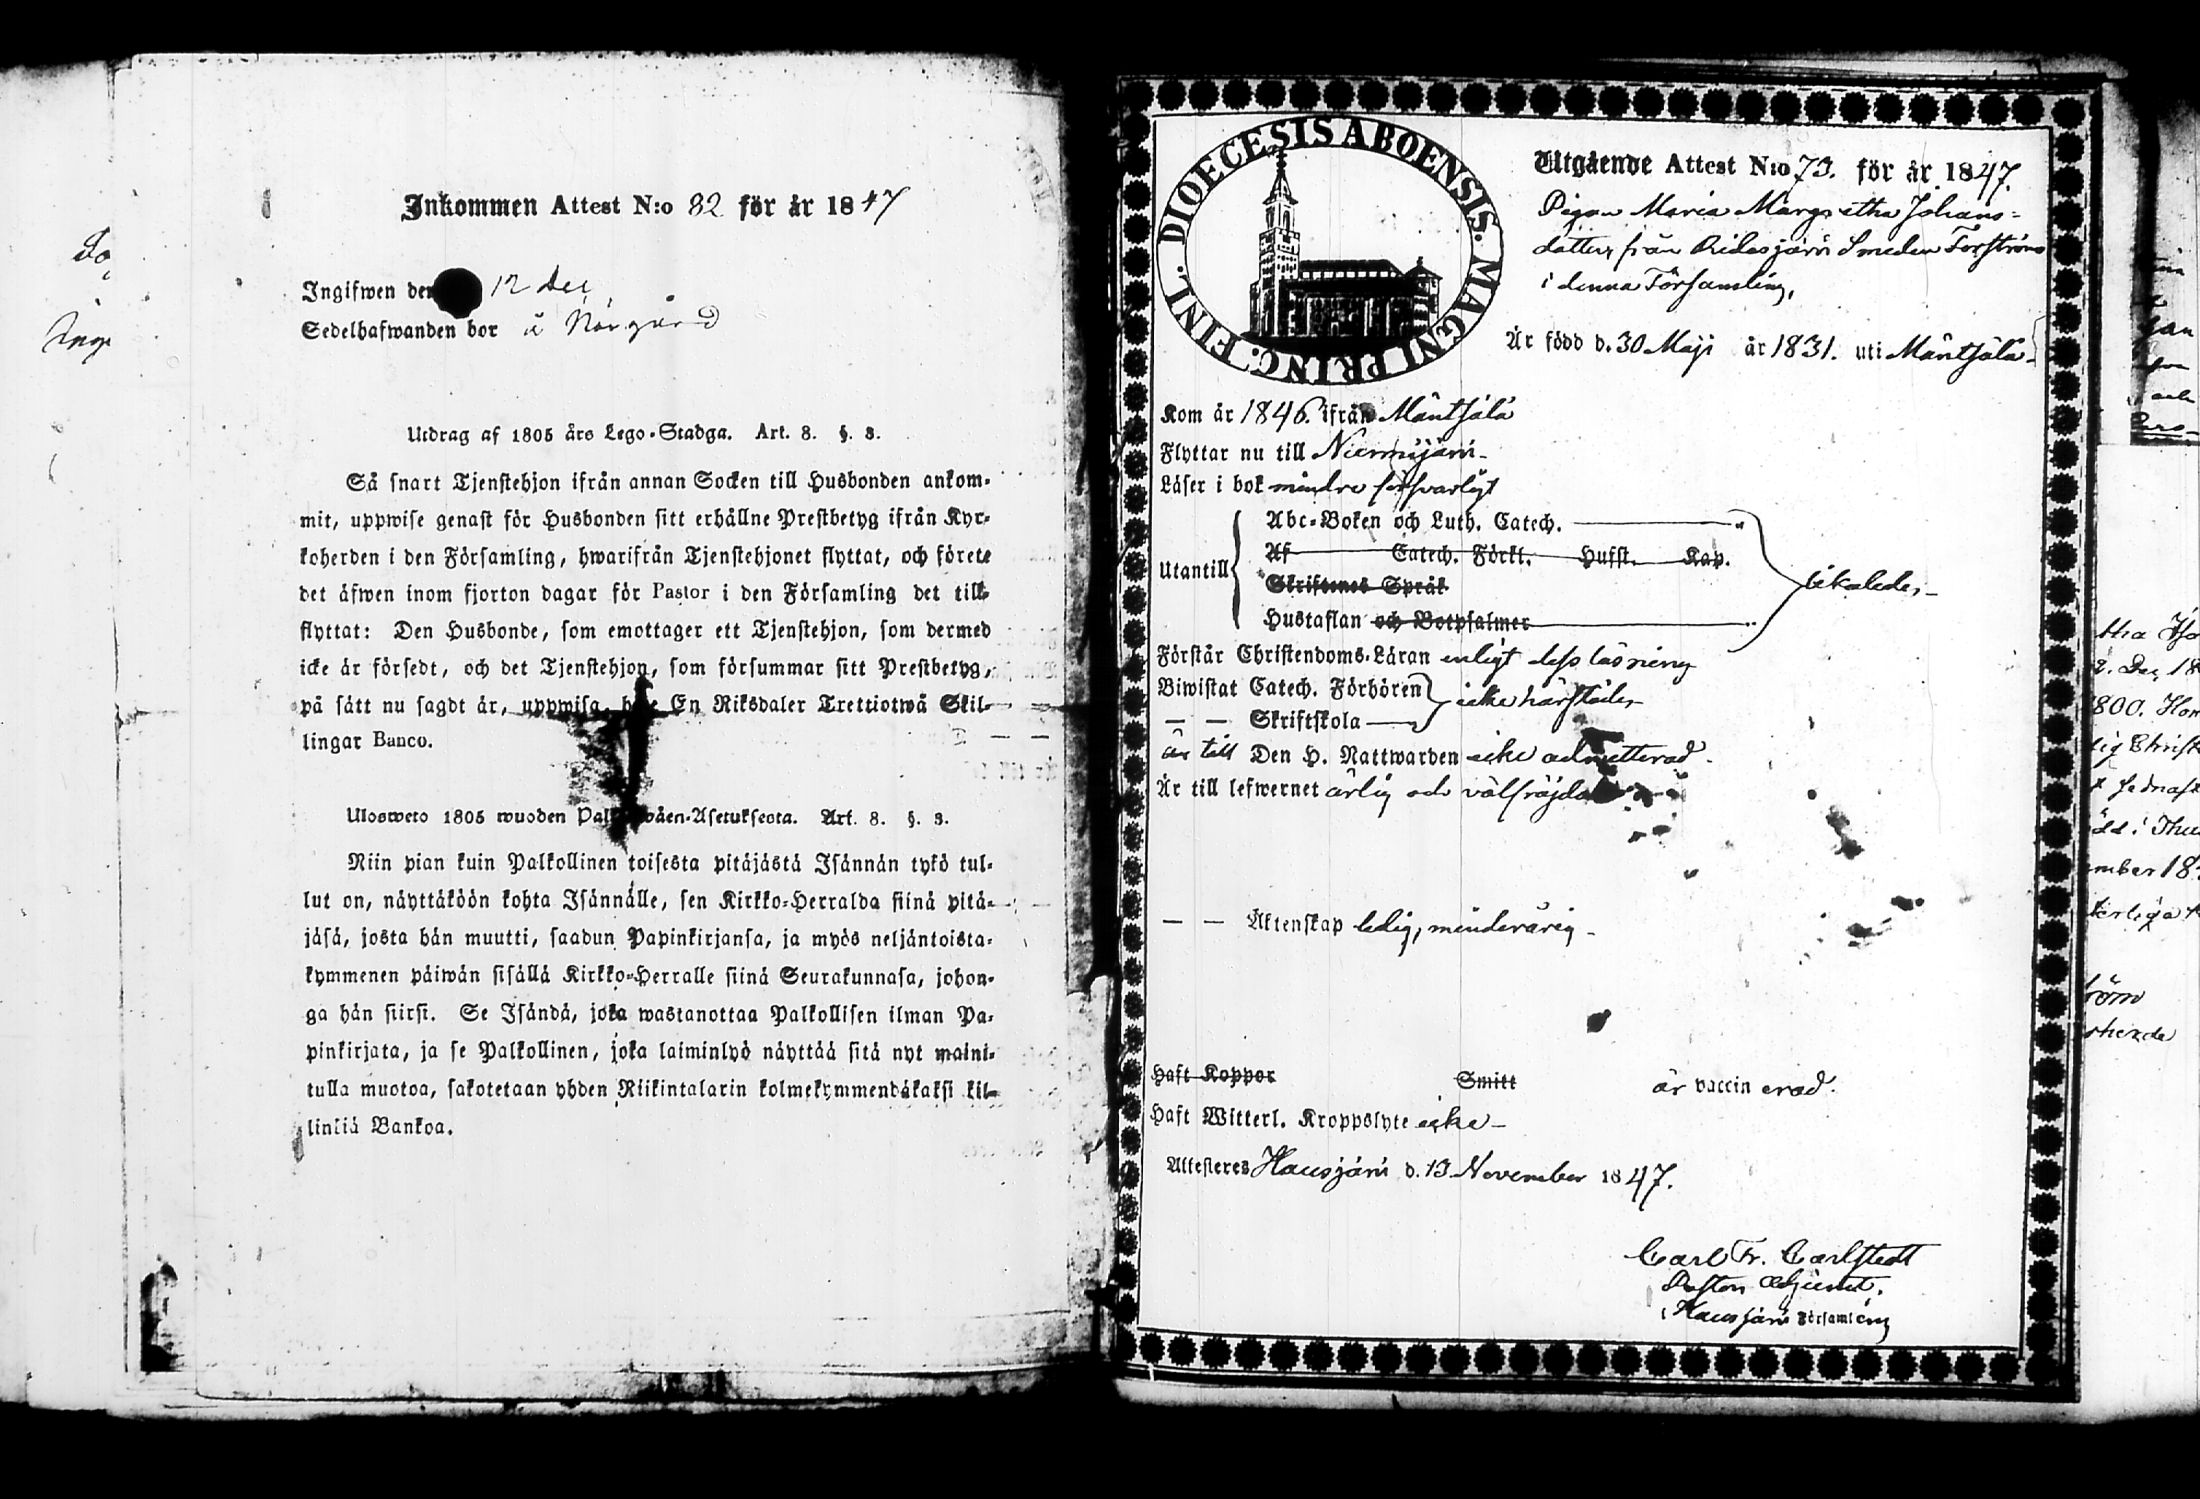 Inkommen Attest N:o 82 för år 1847
Ingifwen den 12 Dec
Sedelhafwanden bor å Norgård
Utdrag af 1805 års Lego-Stadga. Art. 8. §. 3.
Så snart Tjenstehjon ifrån annan Socken till Husbonden ankom-
mit, uppwise genast för Husbonden sitt erhållne Prestbetyg ifrån Kyr-
koherden i den Församling, hwarifrån Tjenstehjonet flyttat, och förete
det äfwen inom fjorton dagar för Pastor i den Församling det till-
flyttat: Den Husbonde, som emottager ett Tjenstehjon, som dermed
icke är försedt, och det Tjenstehjon, som försummar sitt Prestbetyg,
på sätt nu sagdt är, uppwisa, En Riksdaler Trettiotwå Skil-
lingar Banco.
Ulosweto 1805 wuoden Asetuksesta. Art. 8. §. 3.
Niin pian kuin Palkollinen toisesta pitäjästä Isännän tykö tul-
lut on, näyttäköön kohta Isännälle, sen Kirkko-Herralda siinä pitä-
jäsä, josta hän muutti, saadun Papinkirjansa, ja myös neljäntoista-
kymmenen päiwän sisällä Kirkko-Herralle siinä Seurakunnasa, johon-
ga hän siirsi. Se Isändä, joka wastanottaa Palkollisen ilman Pa-
pinkirjata, ja se Palkollinen, joka laiminlyö näyttää sitä nyt maini-
tulla muotoa, sakotetaan yhden Riikintalarin kolmekymmendäkaksi kil-
linkiä Bankoa.
DIOECESIS ABOENSIS. MAGNI PRINC. FINL.
Utgående Attest N:o 73. för år 1847.
Pigan Maria Margretha Johans-
dotter, från Ridasjärvi Smeden Forströms
i denna Församling,
Är född d. 30 Maji år 1831. uti Mäntsälä-
Kom år 1846. ifrån Mäntsälä
Flyttar nu till Nurmijärvi-
Läser i bok mindre försvarligt
Utantill
Abc-Boken och Luth. Catech.
Af Catech. Förkl. Husft. Kap.
Skriftenes Språk
Hustaflan och Botpsalmer
likaledes-
Förstår Christendoms-Läran enligt dess läsning
Biwistat Catech. Förhören
— — Skriftskola
icke härstädes
är till Den H. Nattwarden icke admitterad.
Är till lefwernet ärlig och välfräjdad
— — Äktenskap ledig, minderårig-
Haft Koppor Smitt är vaccinerad.
Haft Witterl. Kroppslyte icke-
Attesteres Hausjärvi d. 13 November 1847.
Carl Fr. Carlstedt
Pastors Adjunct.
i Hausjärvi Församling